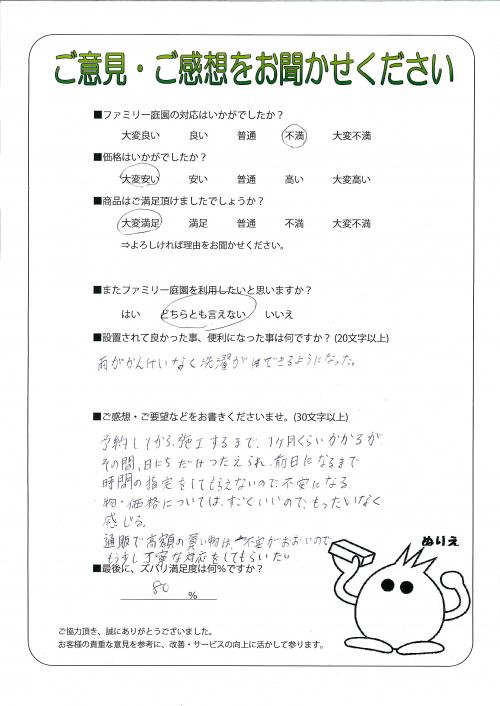 ご意見・ご感想をお聞かせください
■ファミリー庭園の対応はいかがでしたか？
大変良い 良い 普通 不満 大変不満
■価格はいかがでしたか？
大変安い 安い 普通 高い 大変高い
■商品はご満足頂けましたでしょうか？
大変満足 満足 普通 不満 大変不満
⇒よろしければ理由をお聞かせください。
■またファミリー庭園を利用したいと思いますか？
はい どちらとも言えない いいえ
■設置されて良かった事、便利になった事は何ですか？(20文字以上)
雨がかんけいなく洗濯がはできるようになった。
■ご感想・ご要望などをお書きくださいませ。(30文字以上)
予約してから、施工するまで、1ヶ月くらいかかるが
その間、日にちだけつたえられ、前日になるまで
時間の指定をしてもらえないので、不安になる。
物・価格については、すごくいいので、もったいなく
感じる。
通販で高額の買い物は、不安がおおいので
もう少し丁寧な対応をしてもらいたい
ぬりえ
■最後に、ズバリ満足度は何%ですか？
80 %
ご協力頂き、誠にありがとうございました。
お客様の貴重な意見を参考に、改善・サービスの向上に活かして参ります。